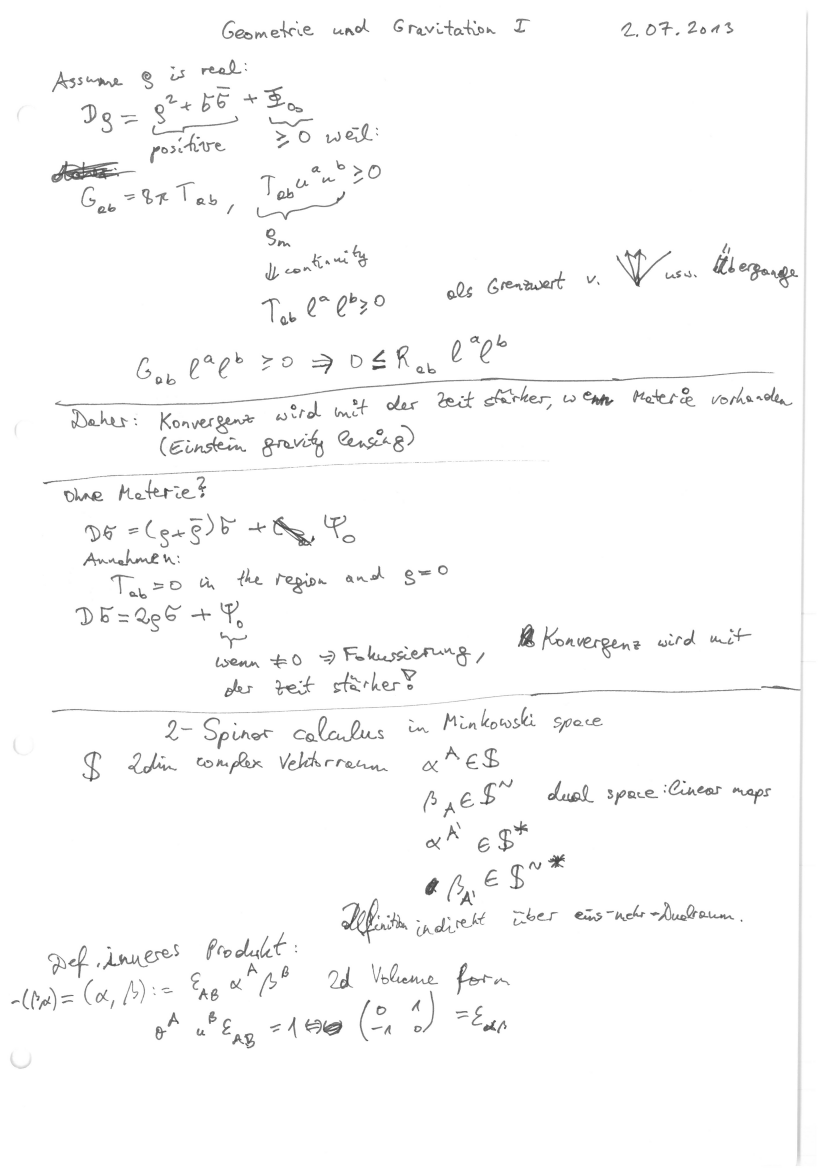 Geometrie und Gravitation I 2.07.2013
Assume ρ is real:
Dρ = ρ² + σσ̄ + Φ₀₀
positive ≥ 0 weil:
G_ab = 8π T_ab, T_ab u^a u^b ≥ 0
ρ_m
⇓ continuity
T_ab l^a l^b ≥ 0 als Grenzwert v. usw. Übergange
G_ab l^a l^b ≥ 0 ⇒ 0 ≤ R_ab l^a l^b
Daher: Konvergenz wird mit der Zeit stärker, wenn Materie vorhanden
(Einstein gravity lensing)
Ohne Materie?
Dσ = (ρ+ρ̄)σ + Ψ₀
Annahmen:
T_ab = 0 in the region and ρ=0
Dσ = 2ρσ + Ψ₀
wenn ≠ 0 ⇒ Fokussierung, Konvergenz wird mit
der Zeit stärker!
2-Spinor calculus in Minkowski space
$ 2dim complex Vektorraum α^A ∈ $
β_A ∈ $^~ dual space: linear maps
α^A' ∈ $^*
β_A' ∈ $^~*
Definition indirekt über eins-mehr-Dualraum.
Def. inneres Produkt:
-(β,α) = (α, β) := ε_AB α^A β^B 2d Volume form
o^A ι^B ε_AB = 1 ⇔ (0 1 / -1 0) = ε_αβ